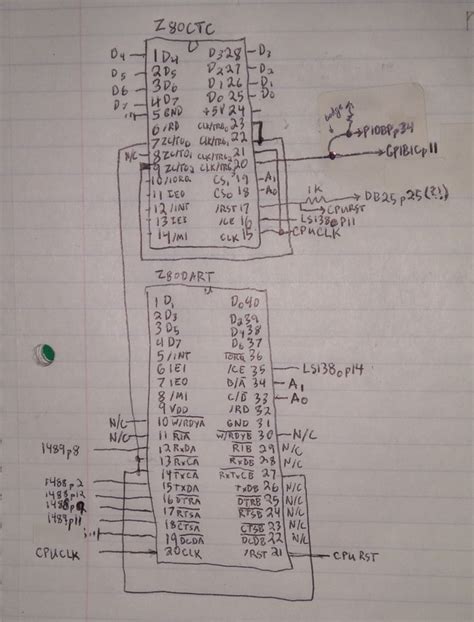 Z80CTC
D4 1 D4 D3 28 D3
D5 2 D5 D2 27 D2
D6 3 D6 D1 26 D1
D7 4 D7 D0 25 D0
5 GND +5V 24
6 /RD CLK/TRG0 23
7 ZC/TO0 CLK/TRG1 22
N/C 8 ZC/TO1 CLK/TRG2 21
9 ZC/TO2 CLK/TRG3 20
10 /IORQ CS1 19 A1
11 IEO CS0 18 A0
12 /INT /RST 17 CPURST
13 IEI /CE 16 LS138p11
14 /M1 CLK 15 CPUCLK
PIOBPp34
GPIBICp11
1K
DB25p25(?!)
Z80DART
1 D1 D0 40
2 D3 D2 39
3 D5 D4 38
4 D7 D6 37
5 /INT IORQ 36
6 IEI /CE 35 LS138p14
7 IEO B/A 34 A1
8 /M1 C/D 33 A0
9 VDD /RD 32
N/C 10 W/RDYA GND 31
N/C 11 RIA W/RDYB 30 N/C
1489p8 12 RxDA RIB 29 N/C
13 RxCA RxDB 28 N/C
14 TxCA RxTxCB 27
1488p2 15 TXDA TxDB 26 N/C
16 DTRA DTRB 25 N/C
17 RTSA RTSB 24 N/C
18 CTSA CTSB 23 N/C
19 DCDA DCDB 22 N/C
CPUCLK 20 CLK /RST 21 CPURST